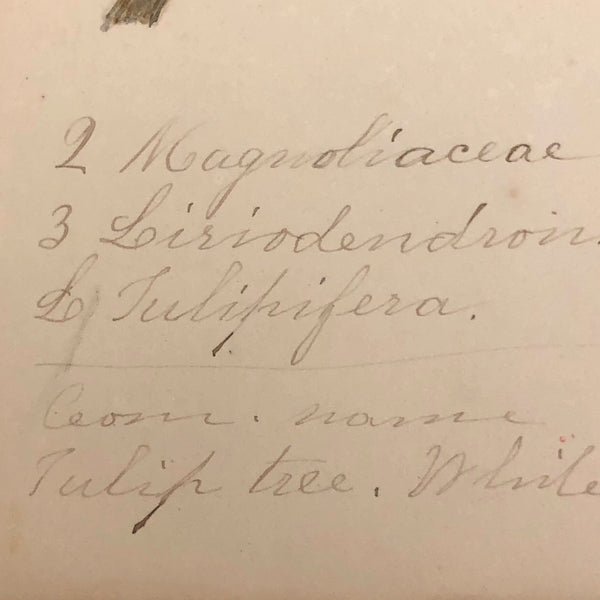 2 Magnoliaceae
3 Liriodendron.
L Tulipifera.
Com. name
Tulip tree. White